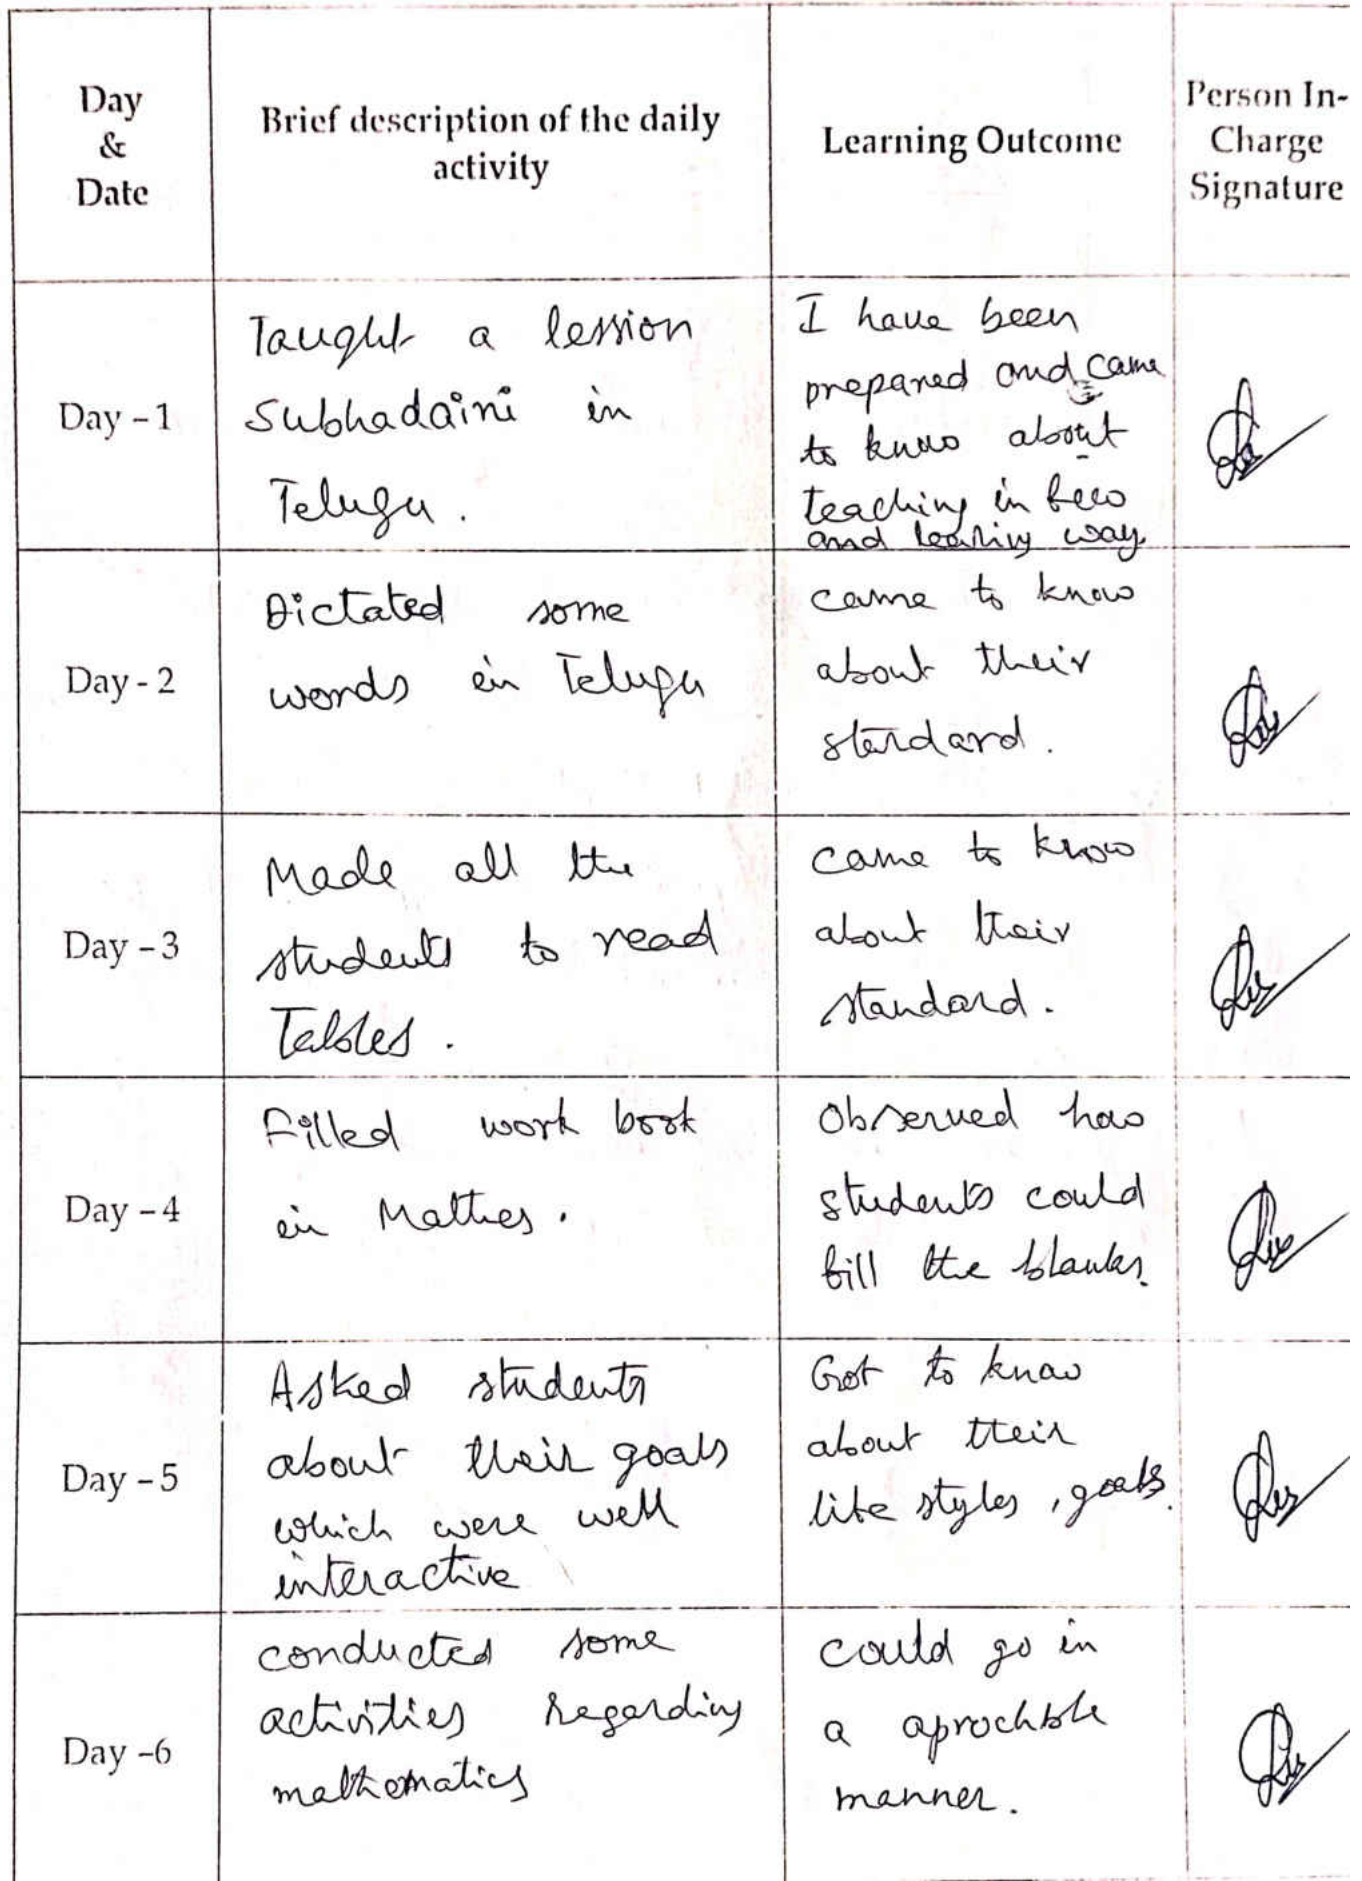 Day
&
Date
Brief description of the daily
activity
Learning Outcome
Person In-
Charge
Signature
Day - 1
Taught a lession
Subhadaini in
Telugu.
I have been
prepared and came
to know about
teaching in few
and learing way
Day - 2
Dictated some
words in Telugu
came to know
about their
standard.
Day - 3
Made all the
students to read
Tables.
came to know
about their
standard.
Day - 4
Filled work book
in Mathes.
Observed how
students could
fill the blanks.
Day - 5
Asked students
about their goals
which were well
interactive
Got to know
about their
life styles, goals.
Day -6
conducted some
activities regarding
mathematics
could go in
a aprochble
manner.